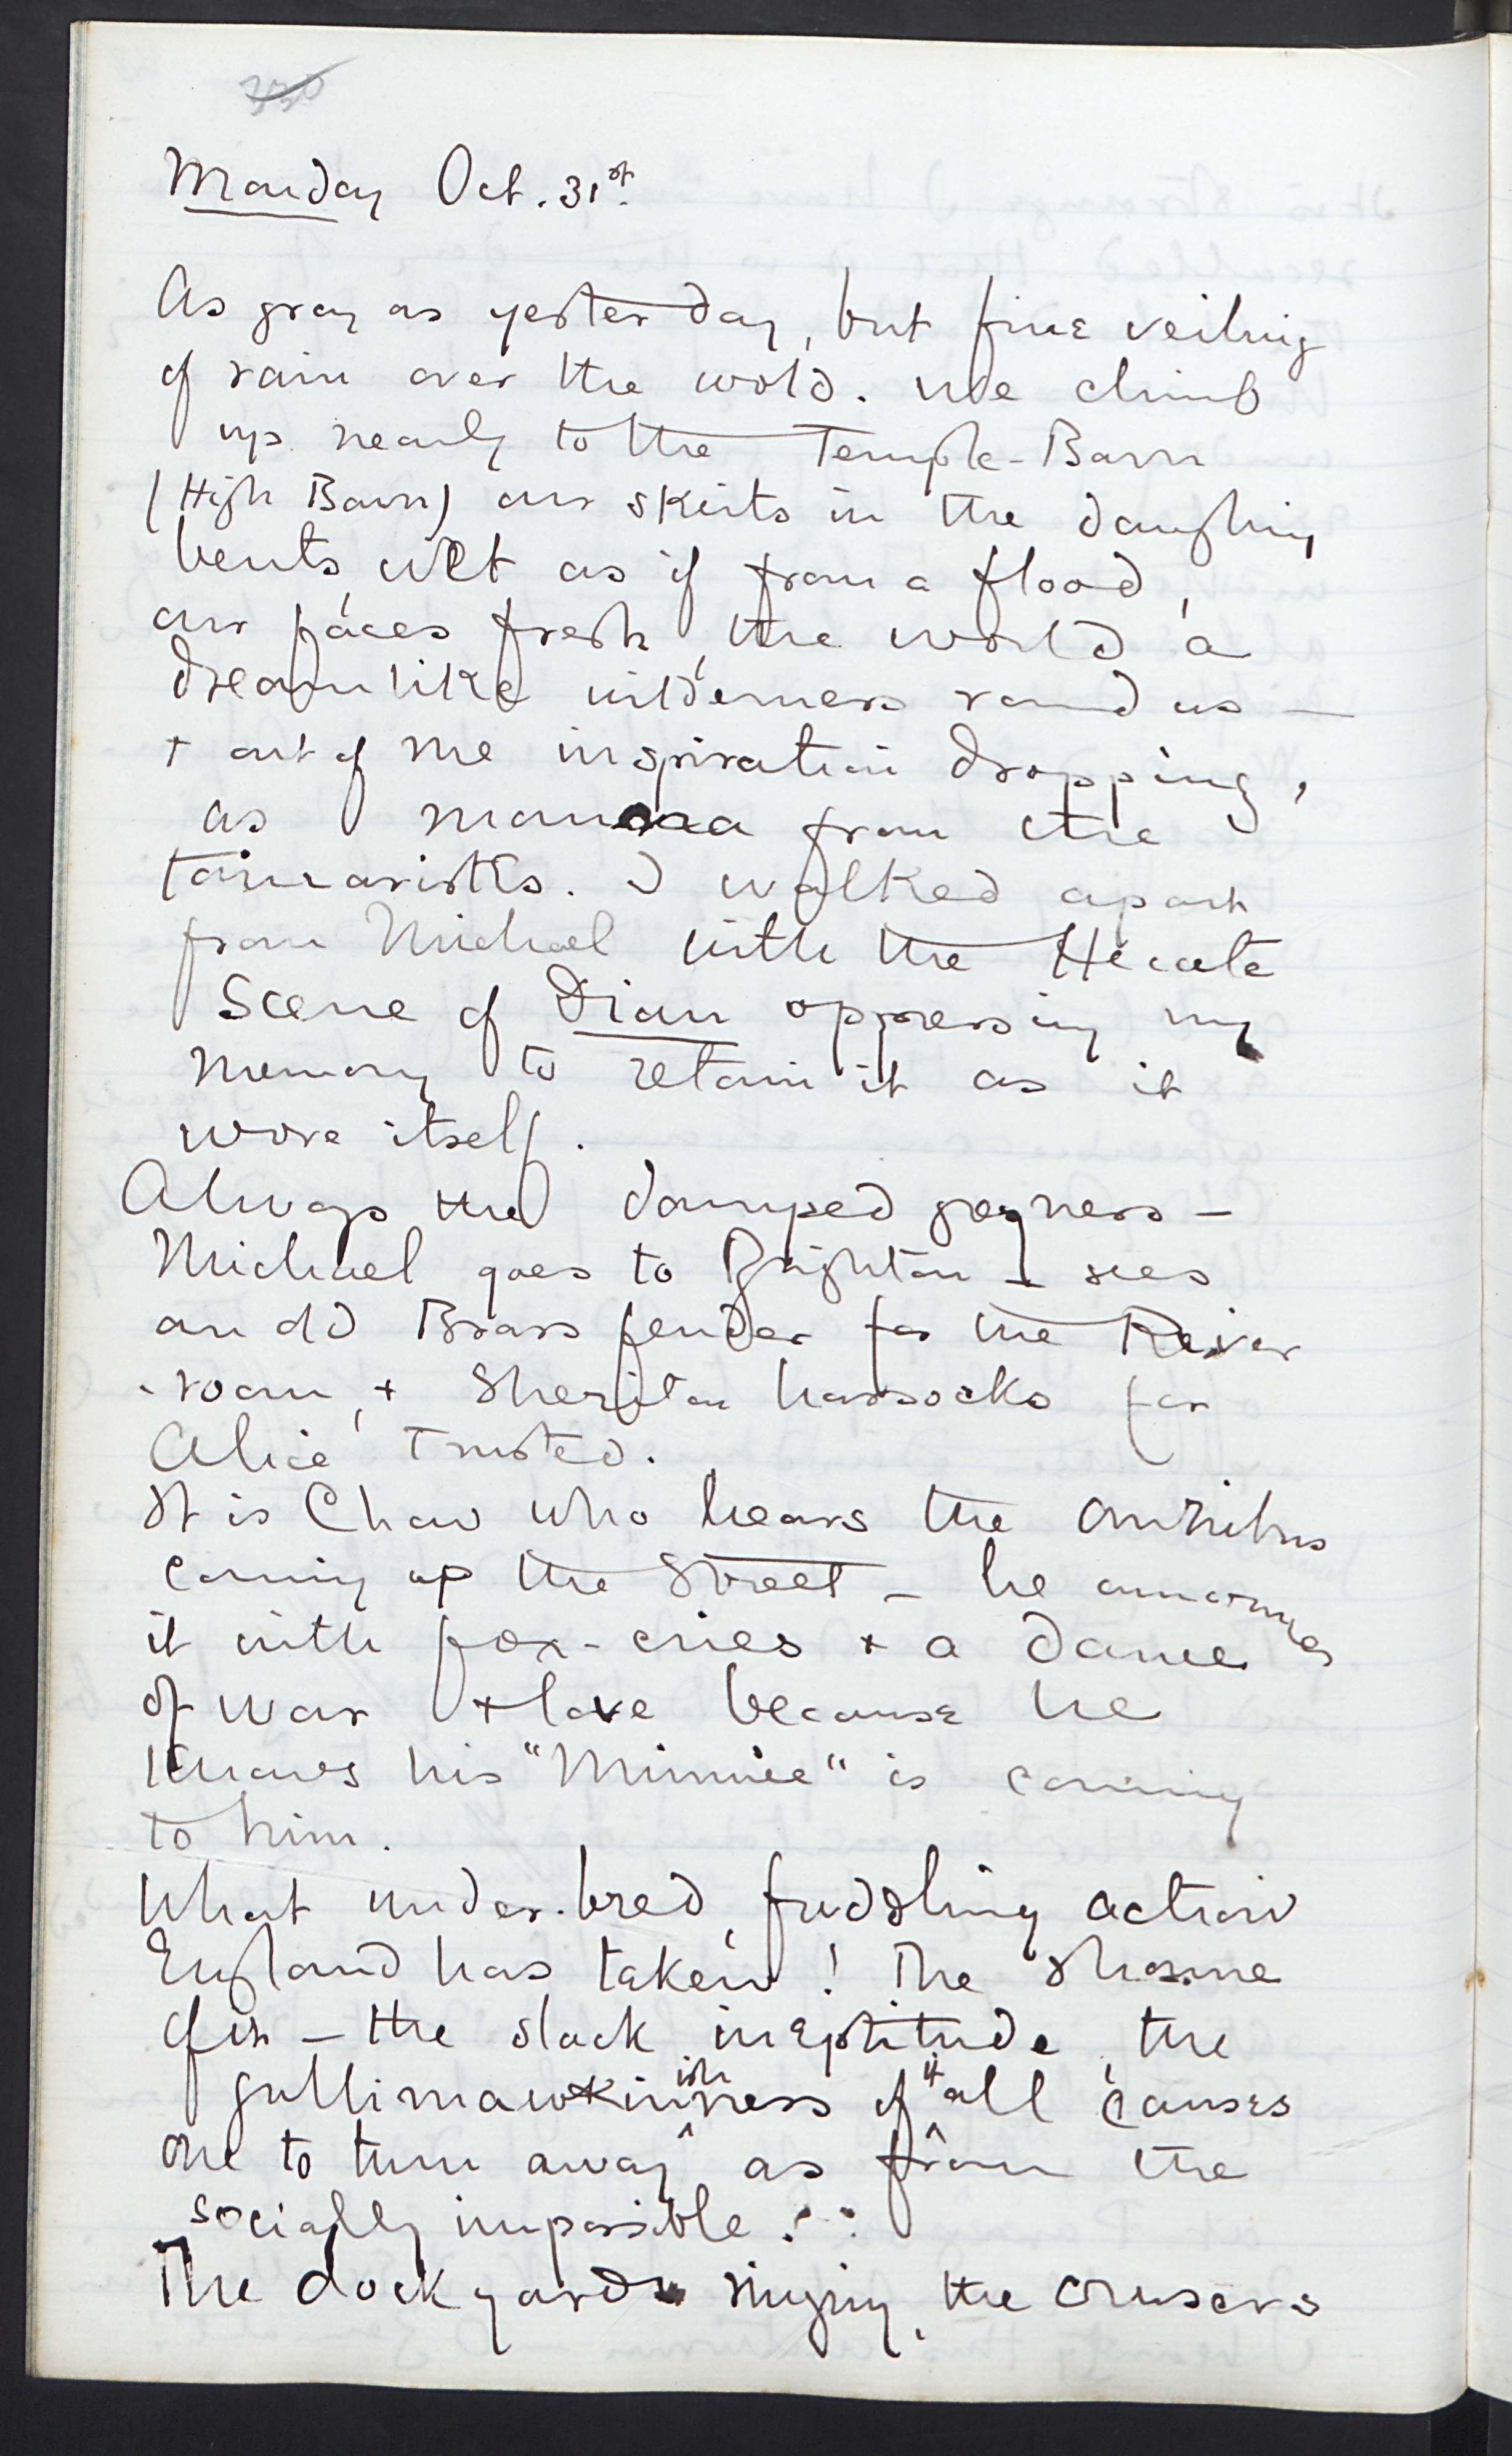 330
Monday Oct. 31st.
As gray as yesterday, but fine veiling
of rain over the wold. We climb
up nearly to the Temple-Barn
(High Barn) our skirts in the
bents, wet as if from a flood,
our faces fresh, the world a
dreamlike wilderness round us —
+ out of me inspiration dropping,
as manna from the
tamarisks. I walked apart
from Michael with the Hecate
Scene of Dian oppressing my
memory to retain it as it
wove itself.
Always the damped grayness —
Michael goes to Brighton — sees
an old Brass fender for the River
-room, + Sheraton hassocks for
Alice Trusted.
It is Chow who hears the omnibus
coming up the Street — he announces
it with fox-cries + a dance
of war + love because he
knows his "Minnie" is coming
to him.
What under-bred, fuddling action
England has taken! The shame
of it — the slack ineptitude, the
gullimawkinishness of it all causes
one to turn away as from the
socially impossible.
The dockyards ringing, the crusers